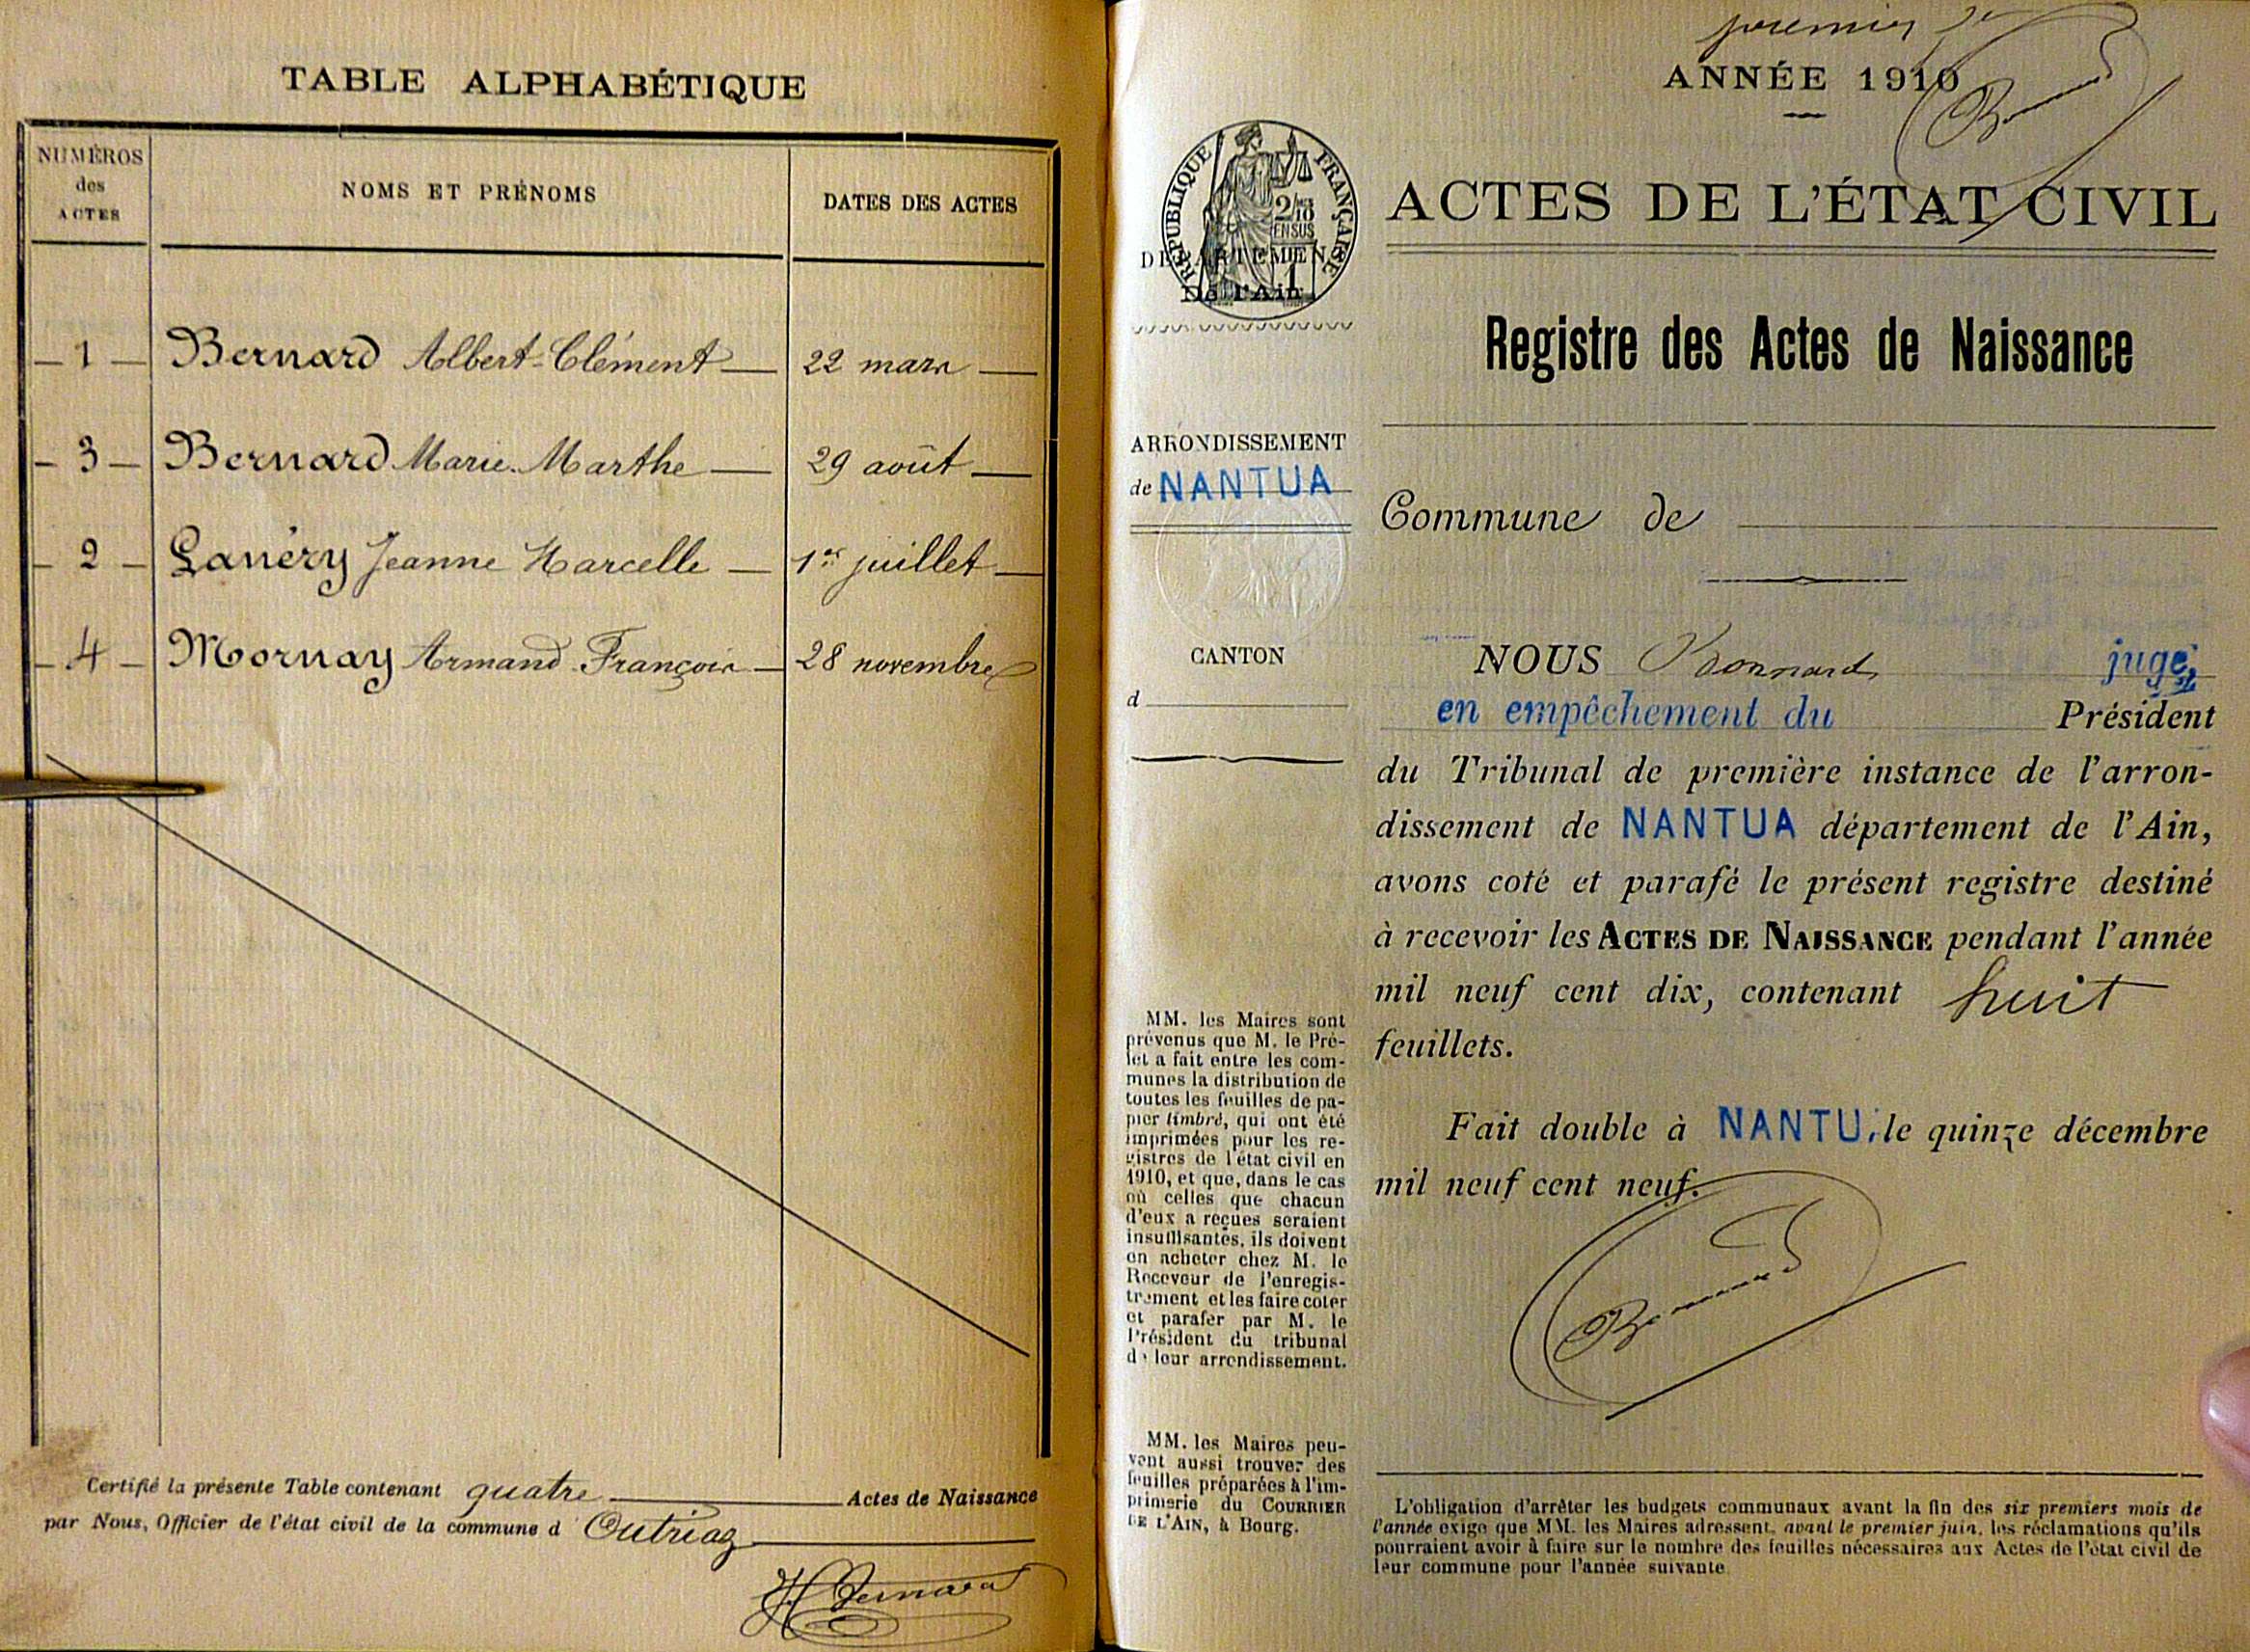 TABLE ALPHABÉTIQUE
NUMÉROS
des
ACTES
NOMS ET PRÉNOMS
DATES DES ACTES
1 Bernard Albert-Clément 22 mars
3 Bernard Marie-Marthe 29 août
2 Lanéry Jeanne Marcelle 1er juillet
4 Mornay Armand François 28 novembre
Certifié la présente Table contenant quatre Actes de Naissance
par Nous, Officier de l'état civil de la commune d Outriaz
H Bernard
premier
ANNÉE 1910
RÉPUBLIQUE FRANÇAISE
2/10
EN SUS
DÉPARTEMENT
De l'Ain
ARRONDISSEMENT
de NANTUA
CANTON
d
MM. les Maires sont
prévenus que M. le Pré-
fet a fait entre les com-
munes la distribution de
toutes les feuilles de pa-
pier timbré, qui ont été
imprimées pour les re-
gistres de l'état civil en
1910, et que, dans le cas
où celles que chacun
d'eux a reçues seraient
insuffisantes, ils doivent
en acheter chez M. le
Receveur de l'enregis-
trement et les faire coter
et parafer par M. le
Président du tribunal
de leur arrondissement.
MM. les Maires peu-
vent aussi trouver des
feuilles préparées à l'im-
primerie du COURRIER
DE L'AIN, à Bourg.
ACTES DE L'ÉTAT CIVIL
Registre des Actes de Naissance
Commune de
NOUS Bonnard juge
en empêchement du Président
du Tribunal de première instance de l'arron-
dissement de NANTUA département de l'Ain,
avons coté et parafé le présent registre destiné
à recevoir les ACTES DE NAISSANCE pendant l'année
mil neuf cent dix, contenant huit
feuillets.
Fait double à NANTU, le quinze décembre
mil neuf cent neuf.
L'obligation d'arrêter les budgets communaux avant la fin des six premiers mois de
l'année exige que MM. les Maires adressent, avant le premier juin, les réclamations qu'ils
pourraient avoir à faire sur le nombre des feuilles nécessaires aux Actes de l'état civil de
leur commune pour l'année suivante.